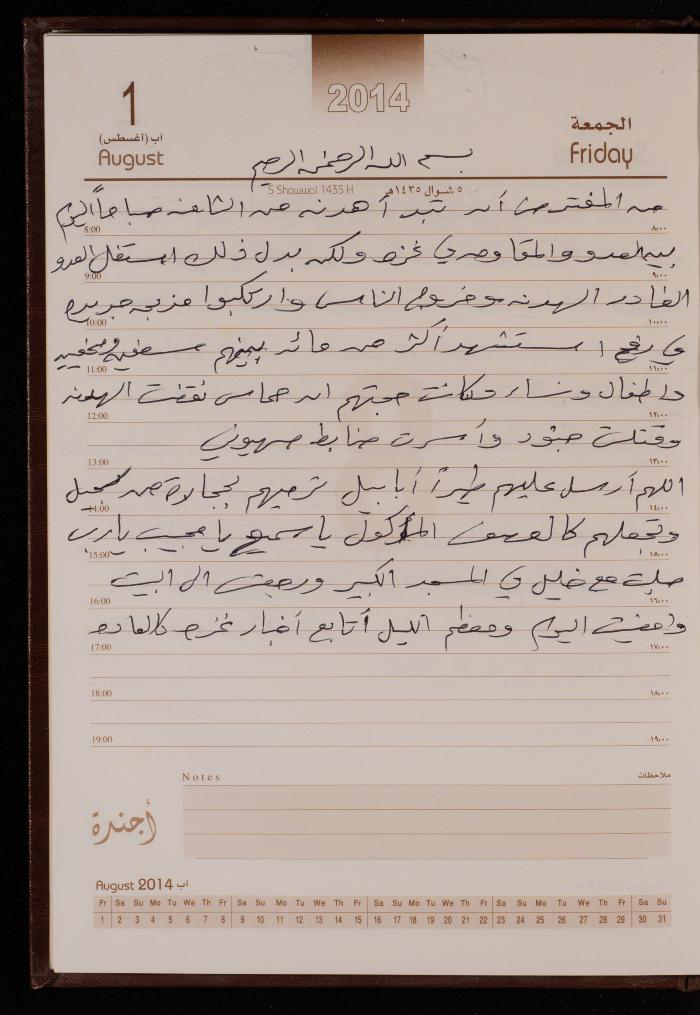 2014
1
الجمعة
آب (أغسطس)
August
Friday
بسم الله الرحمن الرحيم
5 Shawwal 1435 H
٥ شوال ١٤٣٥هـ
من المفترض أن تبدأ هدنه من الثامنه صباحاً اليوم
8:00 ٨،٠٠
بين العدو والمقاومه في غزه ولكن بدل ذلك استغل العدو
9:00 ٩،٠٠
الغادر الهدنه وخروج الناس وارتكبوا مزبحه جديده
10:00 ١٠،٠٠
في رفح استشهد أكثر من مائه بينهم مسعفين وصحفيين
11:00 ١١،٠٠
واطفال ونساء وكانت حجتهم ان حماس نقضت الهدنه
12:00 ١٢،٠٠
وقتلت جنود وأسرت ضابط صهيوني
13:00 ١٣،٠٠
اللهم أرسل عليهم طيراً أبابيل ترميهم بحجارة من سجيل
14:00 ١٤،٠٠
وتجعلهم كالعصف المأكول يا سميع يا مجيب يارب
15:00 ١٥،٠٠
صليت مع خليل في المسجد الكبير ورجعت الى البيت
16:00 ١٦،٠٠
وامضيت اليوم ومعظم الليل أتابع أخبار غزه كالعاده
17:00 ١٧،٠٠
18:00 ١٨،٠٠
19:00 ١٩،٠٠
Notes ملاحظات
أجندة
August 2014 آب
Fr Sa Su Mo Tu We Th Fr Sa Su Mo Tu We Th Fr Sa Su Mo Tu We Th Fr Sa Su Mo Tu We Th Fr Sa Su
1 2 3 4 5 6 7 8 9 10 11 12 13 14 15 16 17 18 19 20 21 22 23 24 25 26 27 28 29 30 31